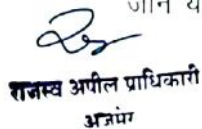 जान य
राजस्व अपील प्राधिकारी
अजमेर